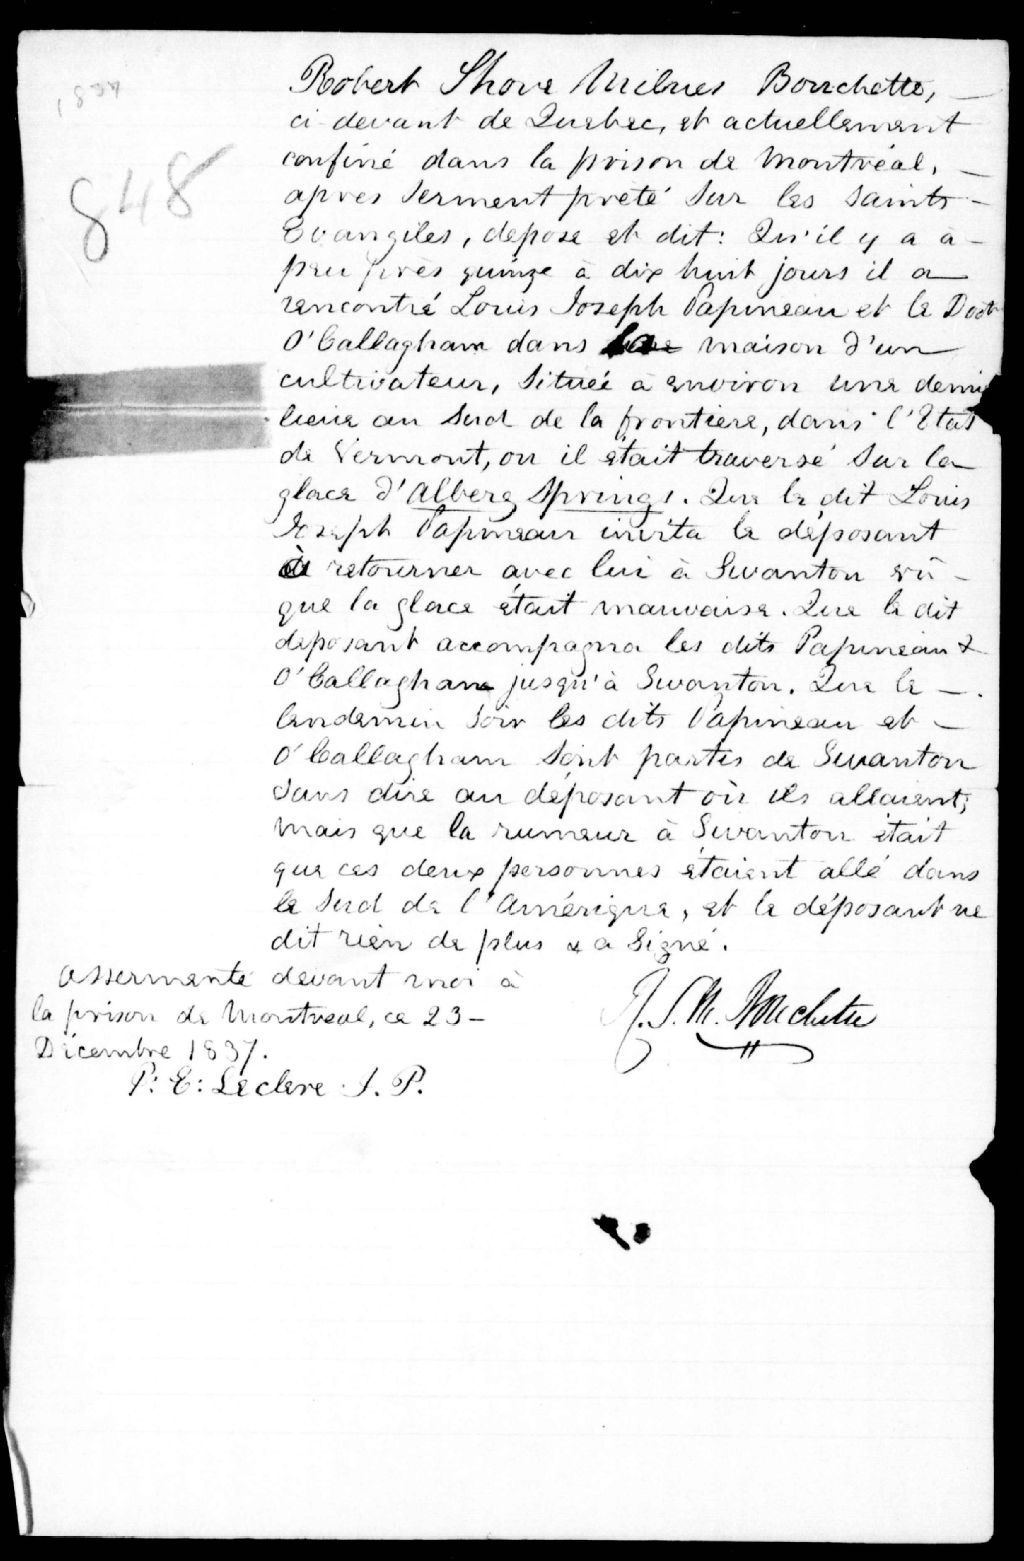 1837
848
Robert Shore Milnes Bouchette,
ci devant de Quebec, et actuellement
confiné dans la prison de Montréal,
apres serment preté sur les saints
Evangiles, dépose et dit: Qu'il y a à
peu près quinze à dix huit jours il a
rencontré Louis Joseph Papineau et le Doctr
O'Callagham dans une maison d'un
cultivateur, située à environ une demi
lieue au sud de la frontiere, dans l'Etat
de Vermont, ou il était traversé sur la
glace d'Alberg Springs. Que le dit Louis
Joseph Papineau invita le déposant
à retourner avec lui à Swanton vû
que la glace était mauvaise. Que le dit
deposant accompagna les dits Papineau &
O'Callagham jusqu'à Swanton. Que le
lendemin soir les dits Papineau et
O'Callagham sont partis de Swanton
sans dire au déposant où ils allaient;
mais que la rumeur à Swanton était
que ces deux personnes étaient allé dans
le sud de l'Amérique, et le déposant ne
dit rien de plus & a signé.
Assermenté devant moi à
la prison de Montreal, ce 23
Décembre 1837.
R. S. M. Bouchette
P: E: Leclere J. P.